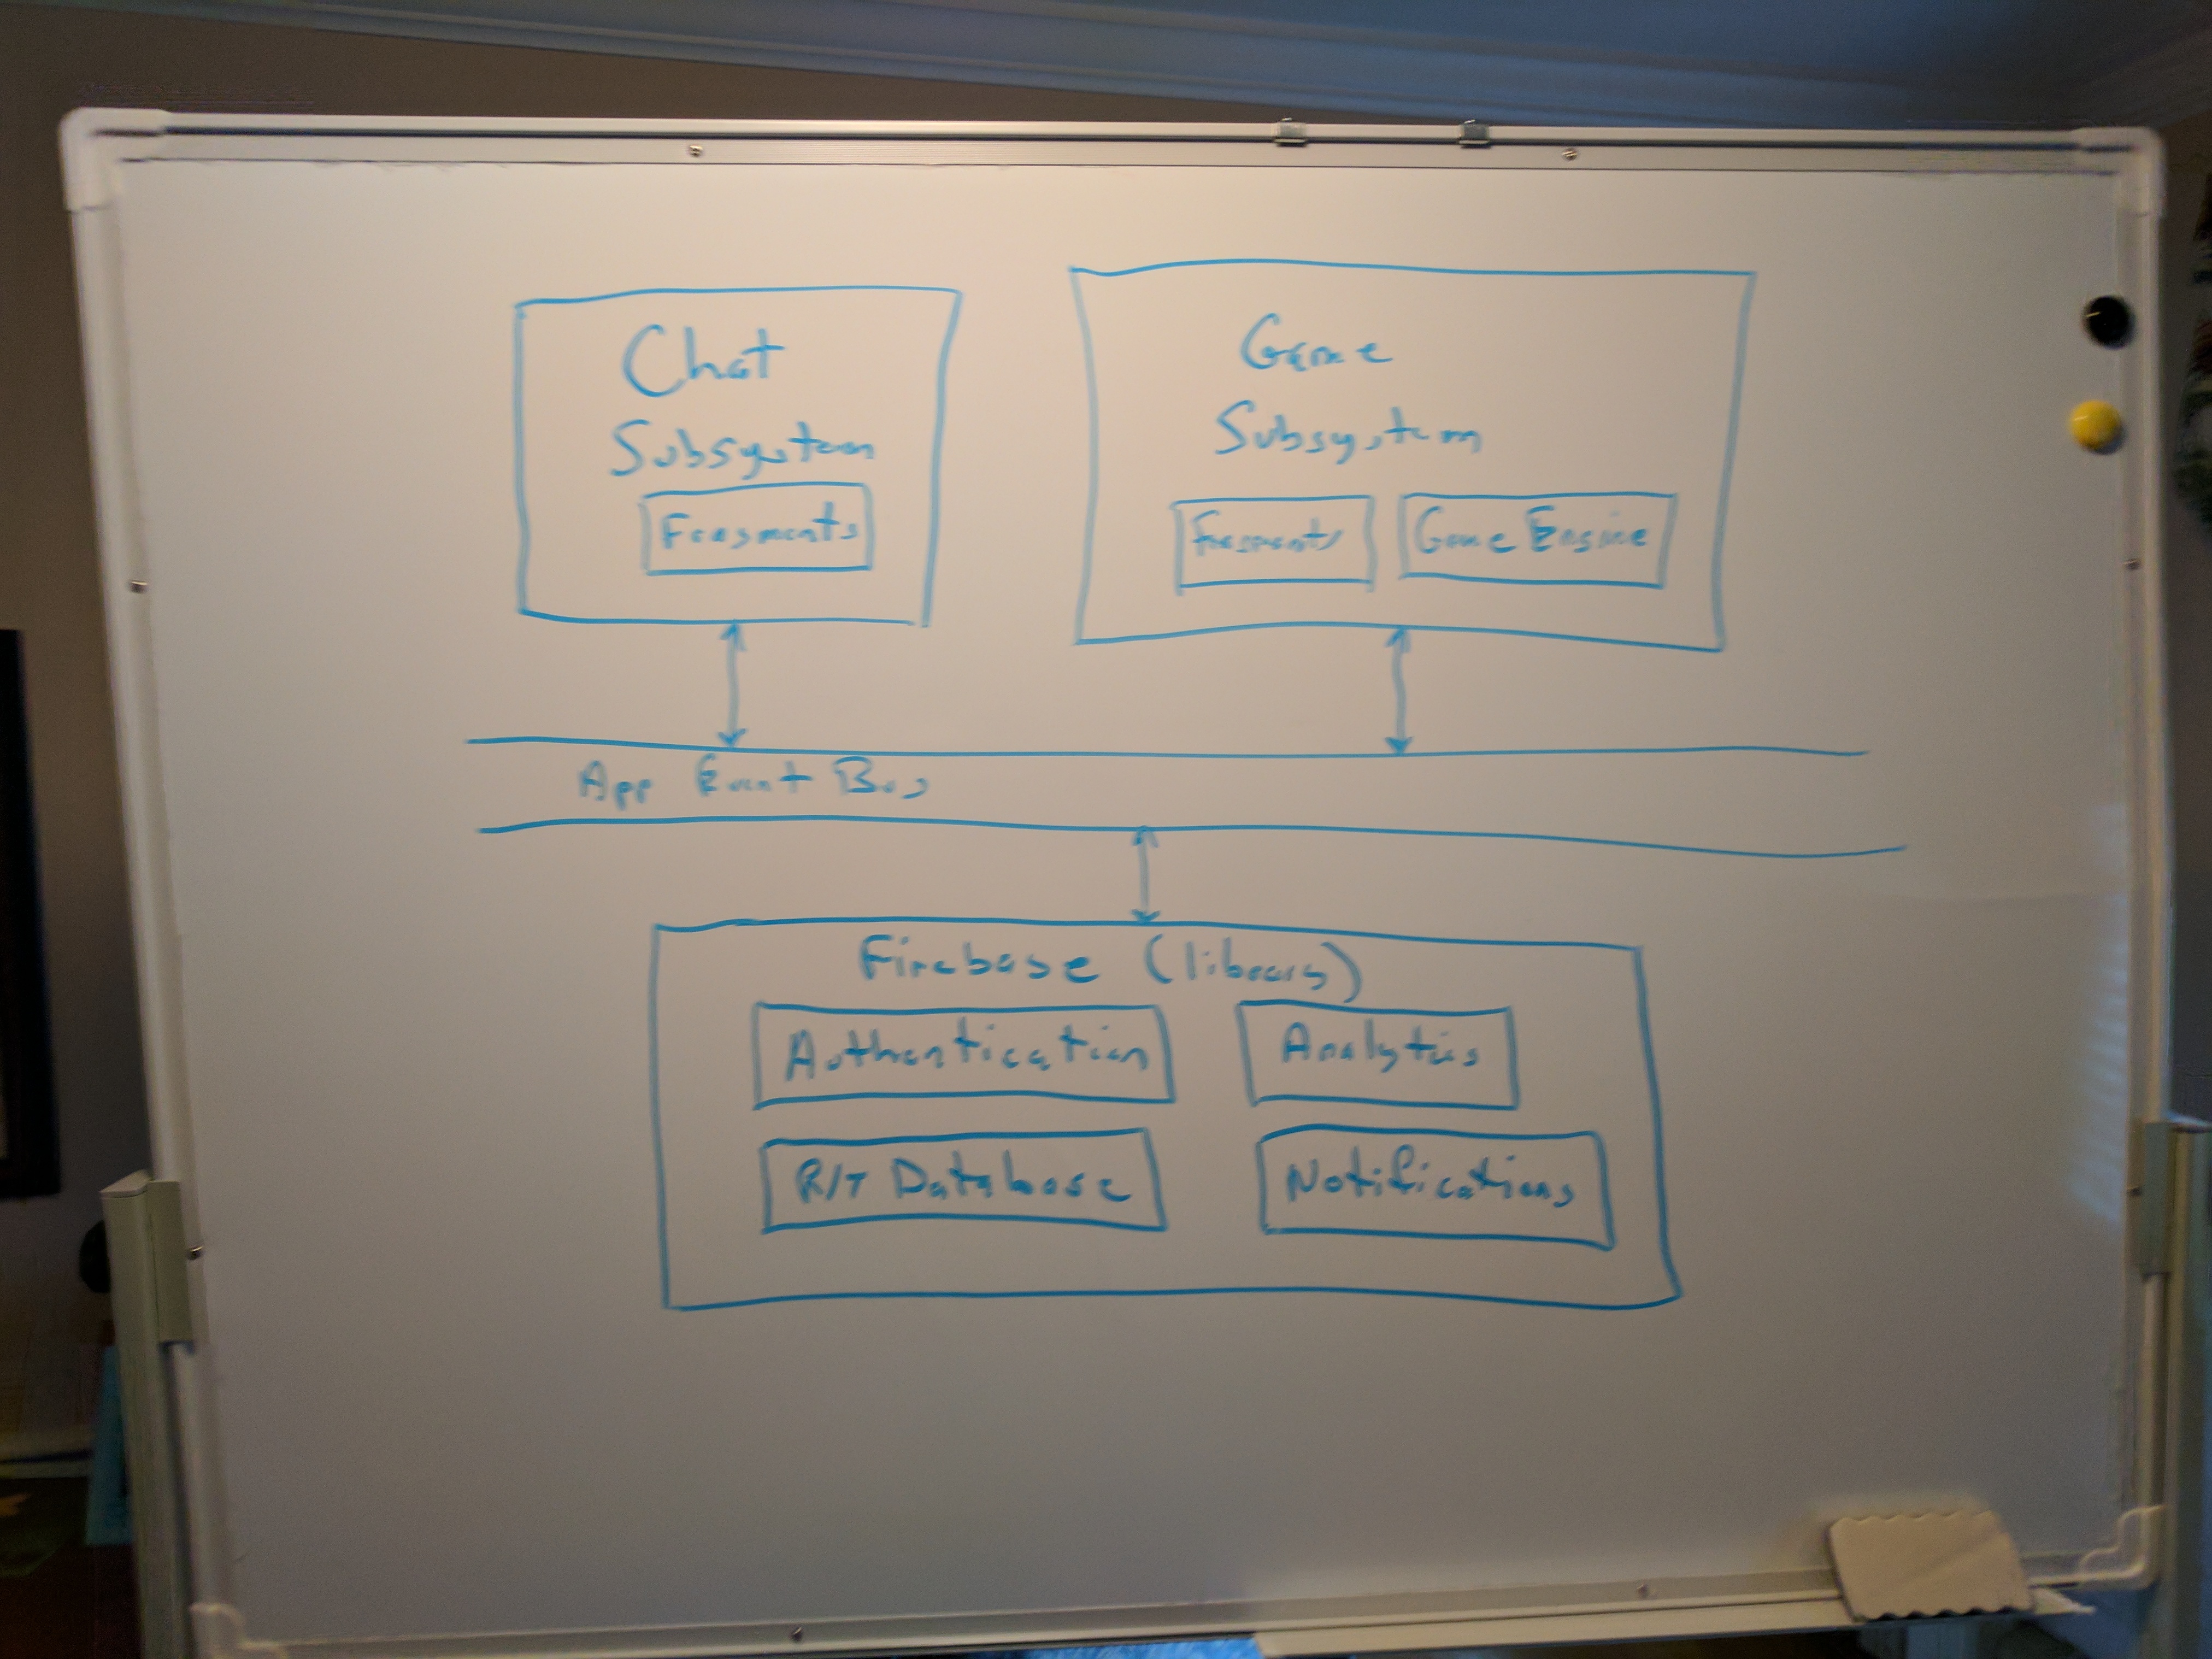 Chat
Subsystem
Fragments
Game
Subsystem
Fragments
Game Engine
App Event Bus
Firebase (library)
Authentication
Analytics
R/T Database
Notifications